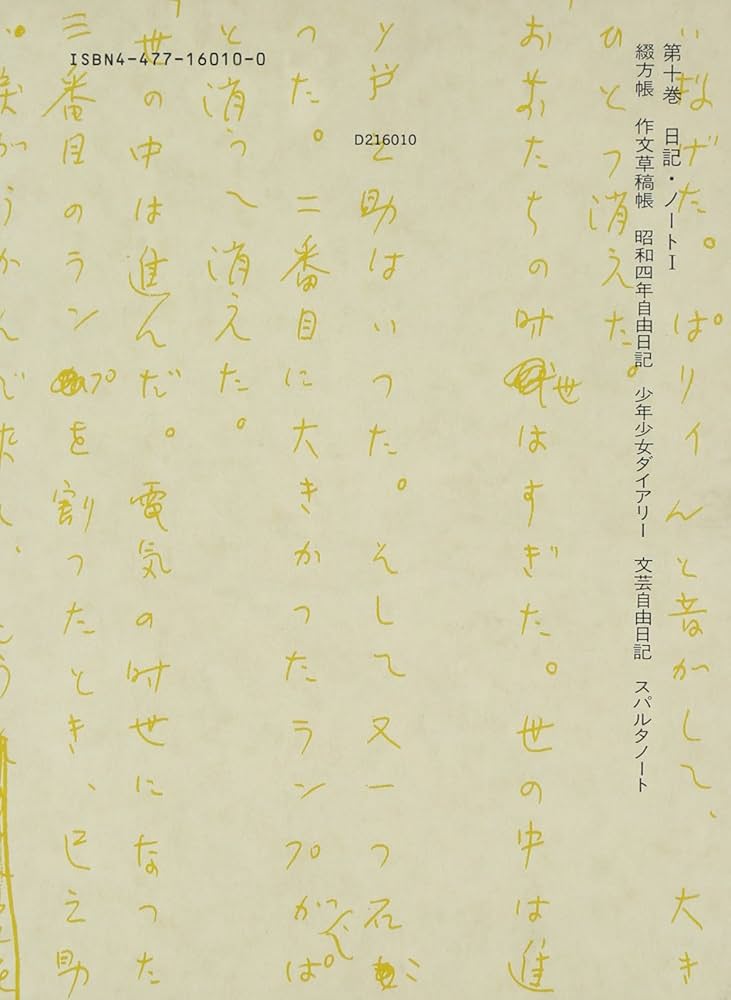 第十巻　日記・ノートⅠ
綴方帳　作文草稿帳　昭和四年自由日記　少年少女ダイアリー　文芸自由日記　スパルタノート
ISBN4-477-16010-0
D216010
なげた。ぱリインと音がして、大き
ひとつ消えた。
たちの時世はすぎた。世の中は進
助はいつた。そして又一つ石
つた。二番目に大きかつたランプがぱ
消えた。
世の中は進んだ。電気の時世になつた
三番目のランプを割つたとき、巳之助